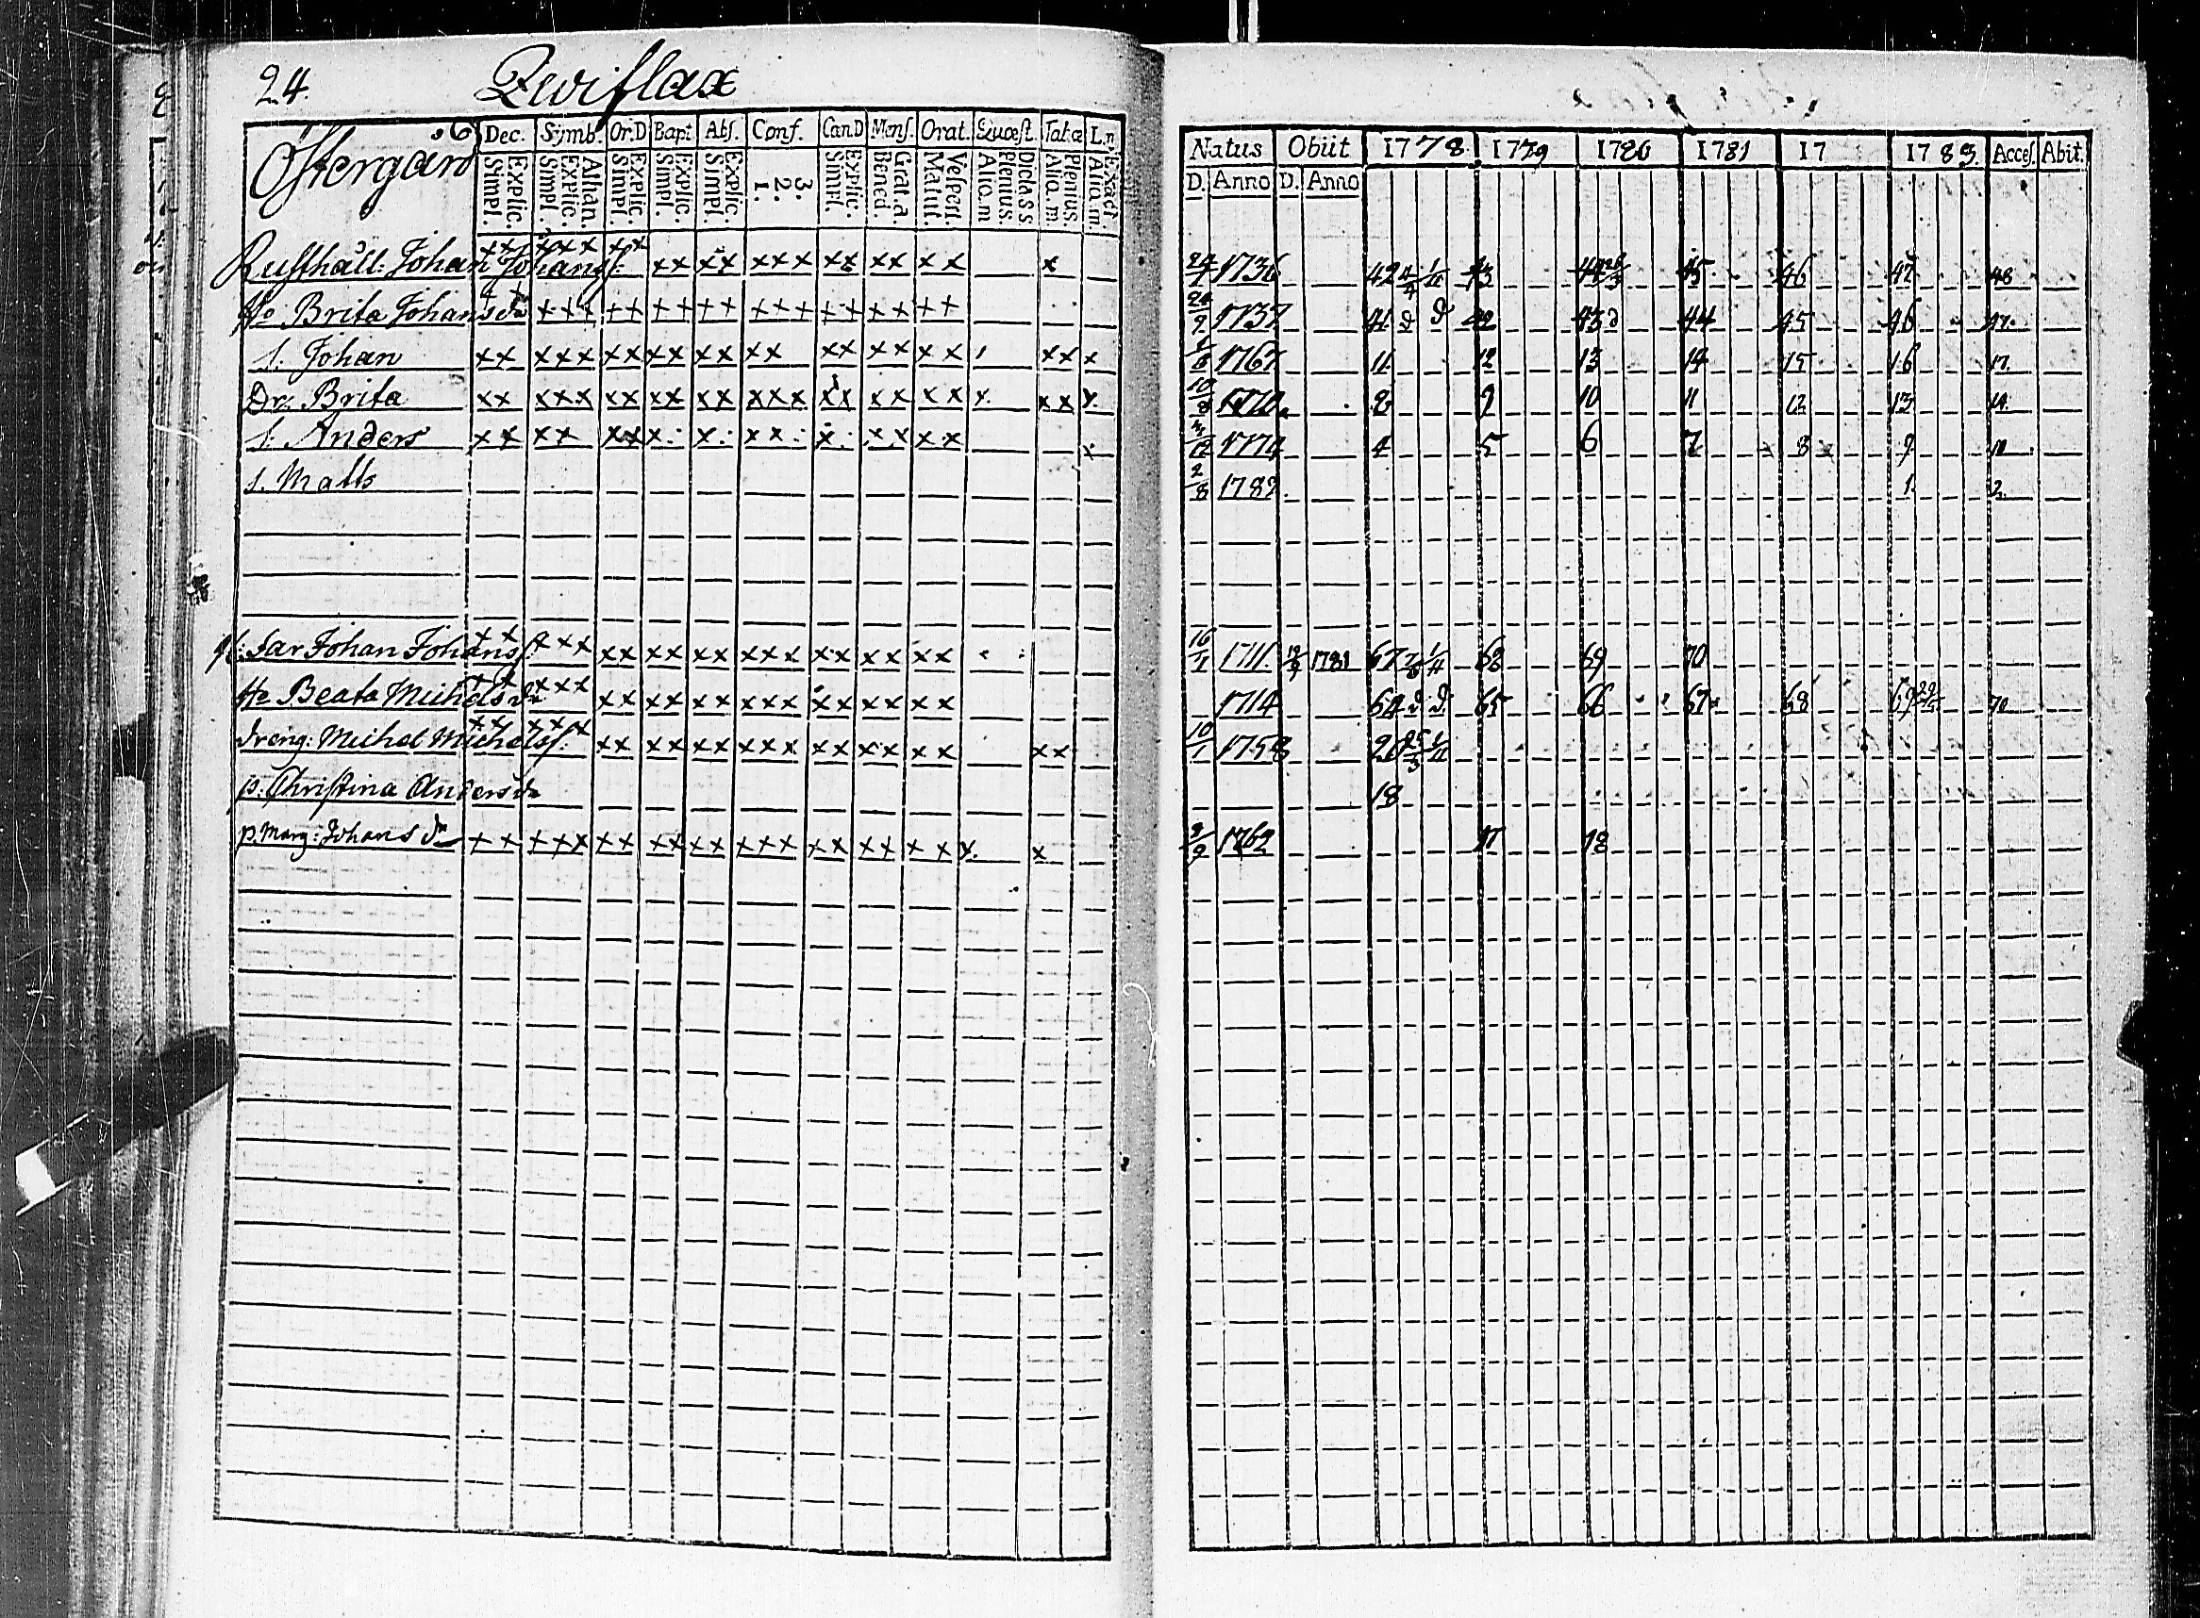 24. Qwiflax
Östergård .6
Dec. Symb. Or.D Bapt Abs. Conf. Can.D Mens. Orat. Quæst. Tatæ L.n
Simpl. Explic. Simpl. Explic. Athan. Simpl. Explic. Simpl. Explic. Simpl. Explic. 1. 2. 3. Simpl. Explic. Bened. Grat.a Matut. Vespert. Aliq.m Plenius. Aliq.m. Plenius. Aliq.m. Exact.
Natus Obiit 1778. 1779 1780 1781 17 1783. Acces. Abit.
D. Anno D. Anno
Rusthåll: Johan Johanss: xx xxx xx xx xx xxx xx xx xx x 1736 42 43 44 45 46 47 48
Ho Brita Johansdr xx xxx xx xx xx xxx xx xx xx 1737 41 d d 42 43 d 44 45 46 47.
s. Johan xx xxx xx xx xx xx xx xx xx xx x 1767 11. 12 13 14 15 16 17.
Dr. Brita xx xxx xx xx xx xxx xx xx xx x. xx x. 8 9 10 11 12 13 14.
s. Anders xx xx xx x. x. xx. x. xx xx x 1774 4 5 6 7 8 9
s. Matts 2/8 1782 1. 2.
Far Johan Johanss. xx xxx xx xx xx xxx xx xx xx 16/1 1711. 1781 67 68 69 70
Ho Beata Michelsdr xx xxx xx xx xx xxx xx xx xx 1714 64 d d. 65 66 67 68 69 70
dreng: Michel Michelss: xx xxx xx xx xx xxx xx xx xx xx 10/1 1758 20
p. Christina Andersdr 18
p. Marg: Johansdr xx xxx xx xx xx xxx xx xx xx x. x 1762 17 18